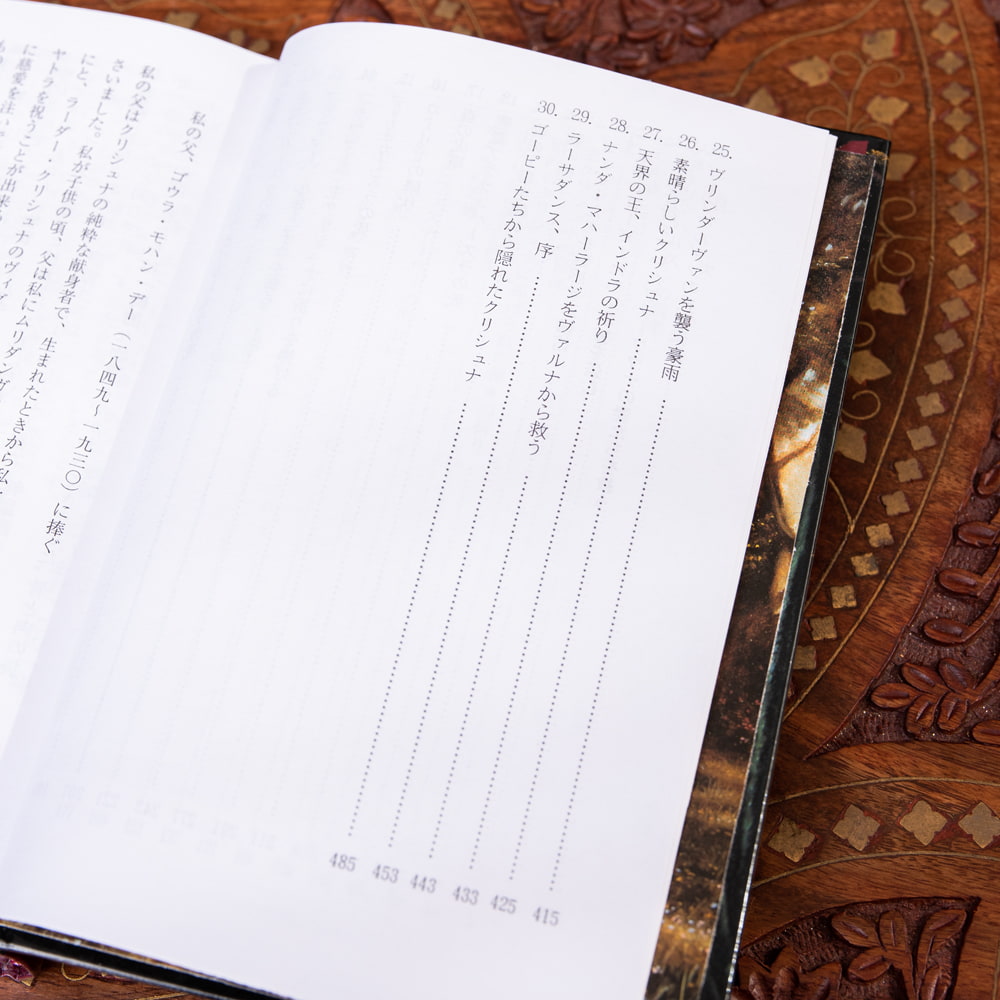 25. ヴリンダーヴァンを襲う豪雨 415
26. 素晴らしいクリシュナ 425
27. 天界の王、インドラの祈り 433
28. ナンダ・マハーラージをヴァルナから救う 443
29. ラーサダンス、序 453
30. ゴーピーたちから隠れたクリシュナ 485
私の父、ゴウラ・モハン・デー（一八四九〜一九三〇）に捧ぐ
私の父はクリシュナの純粋な献身者で、生まれたときから私
さいました。私が子供の頃、父は私にムリダンガ
にと、ラーダー・クリシュナのヴィグ
ヤトラを祝うことが出来
に慈愛を注い